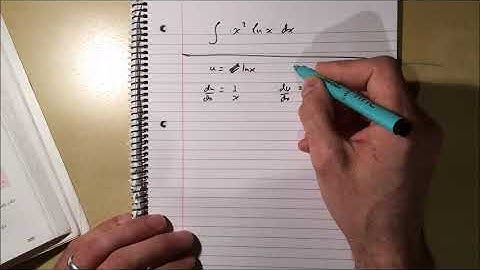 ∫ x² ln x dx
u = ln x
du/dx = 1/x dv/dx =